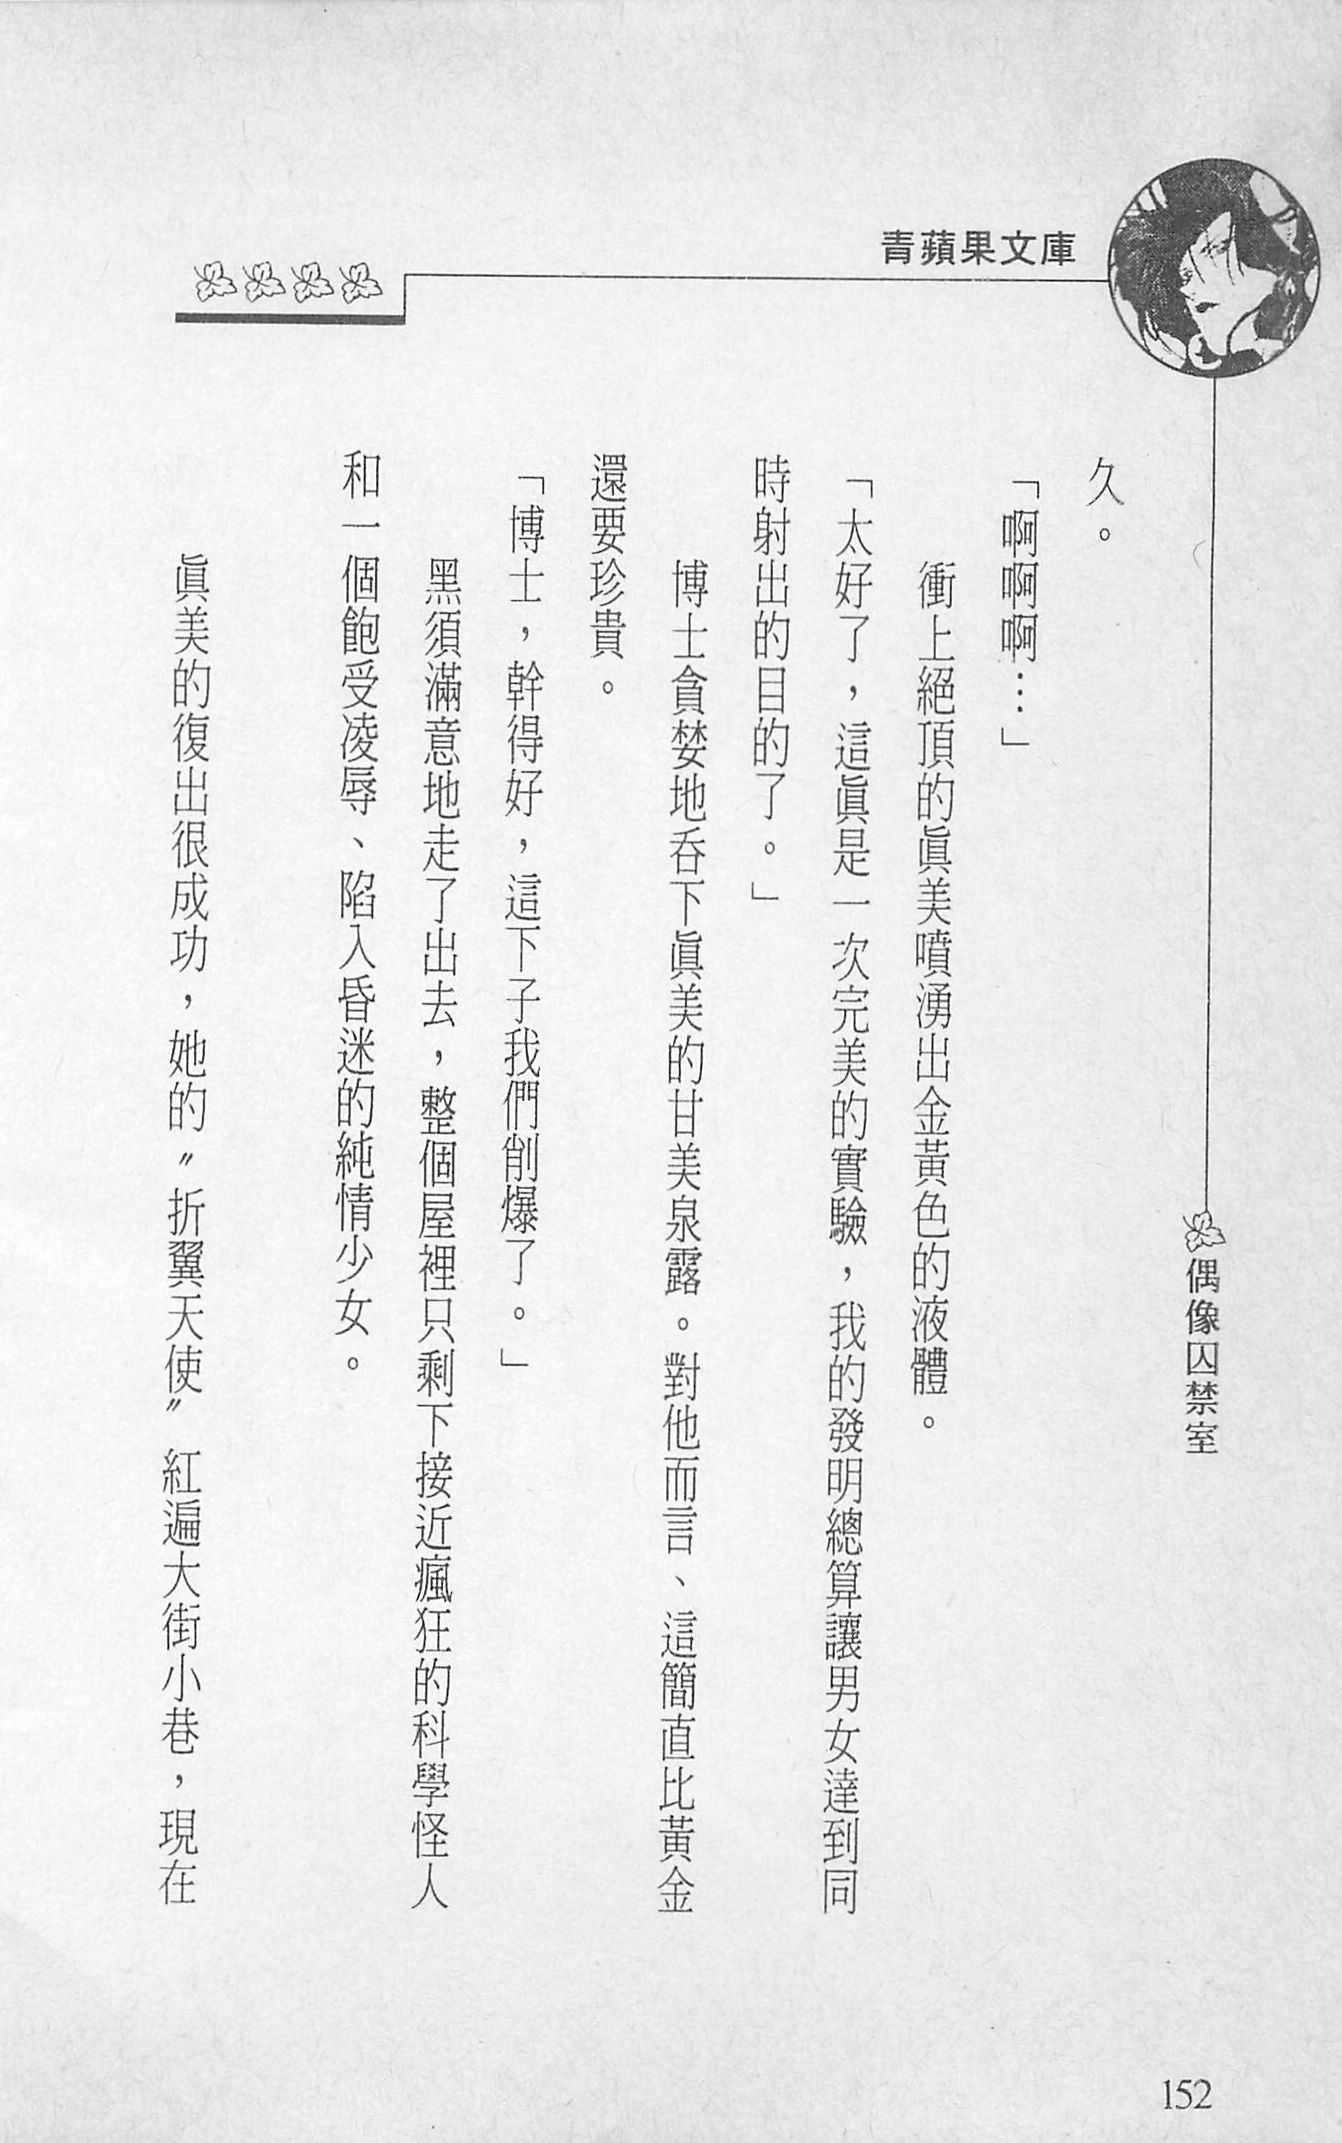 青蘋果文庫
偶像囚禁室
久。
「啊啊啊…」
衝上絕頂的眞美噴湧出金黃色的液體。
「太好了，這眞是一次完美的實驗，我的發明總算讓男女達到同
時射出的目的了。」
博士貪婪地呑下眞美的甘美泉露。對他而言、這簡直比黃金
還要珍貴。
「博士，幹得好，這下子我們削爆了。」
黑須滿意地走了出去，整個屋裡只剩下接近瘋狂的科學怪人
和一個飽受凌辱、陷入昏迷的純情少女。
眞美的復出很成功，她的〝折翼天使〞紅遍大街小巷，現在
152